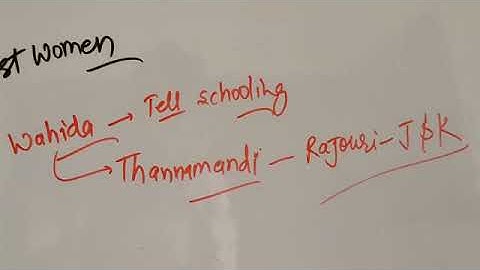 st women
Wahida → Tell schooling
→ Thannamandi – Rajouri – J&K